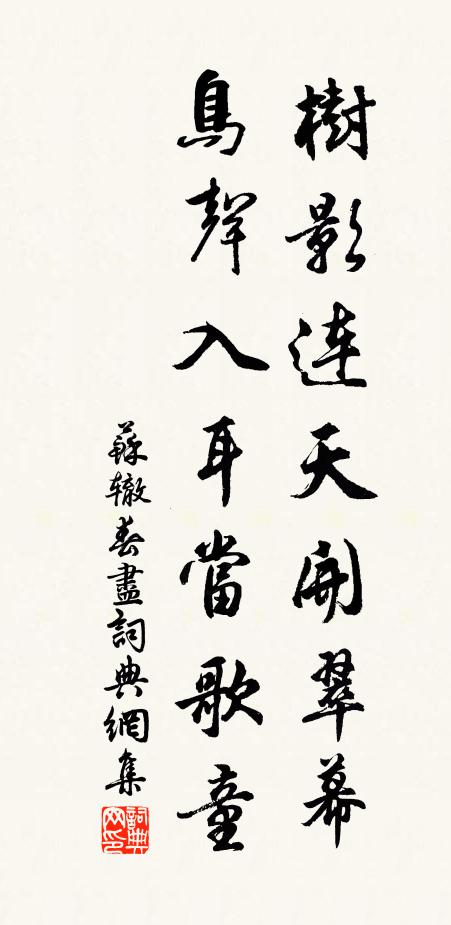 樹影連天開翠幕
鳥聲入耳當歌童
蘇轍春盡詞典網集
詞典网印